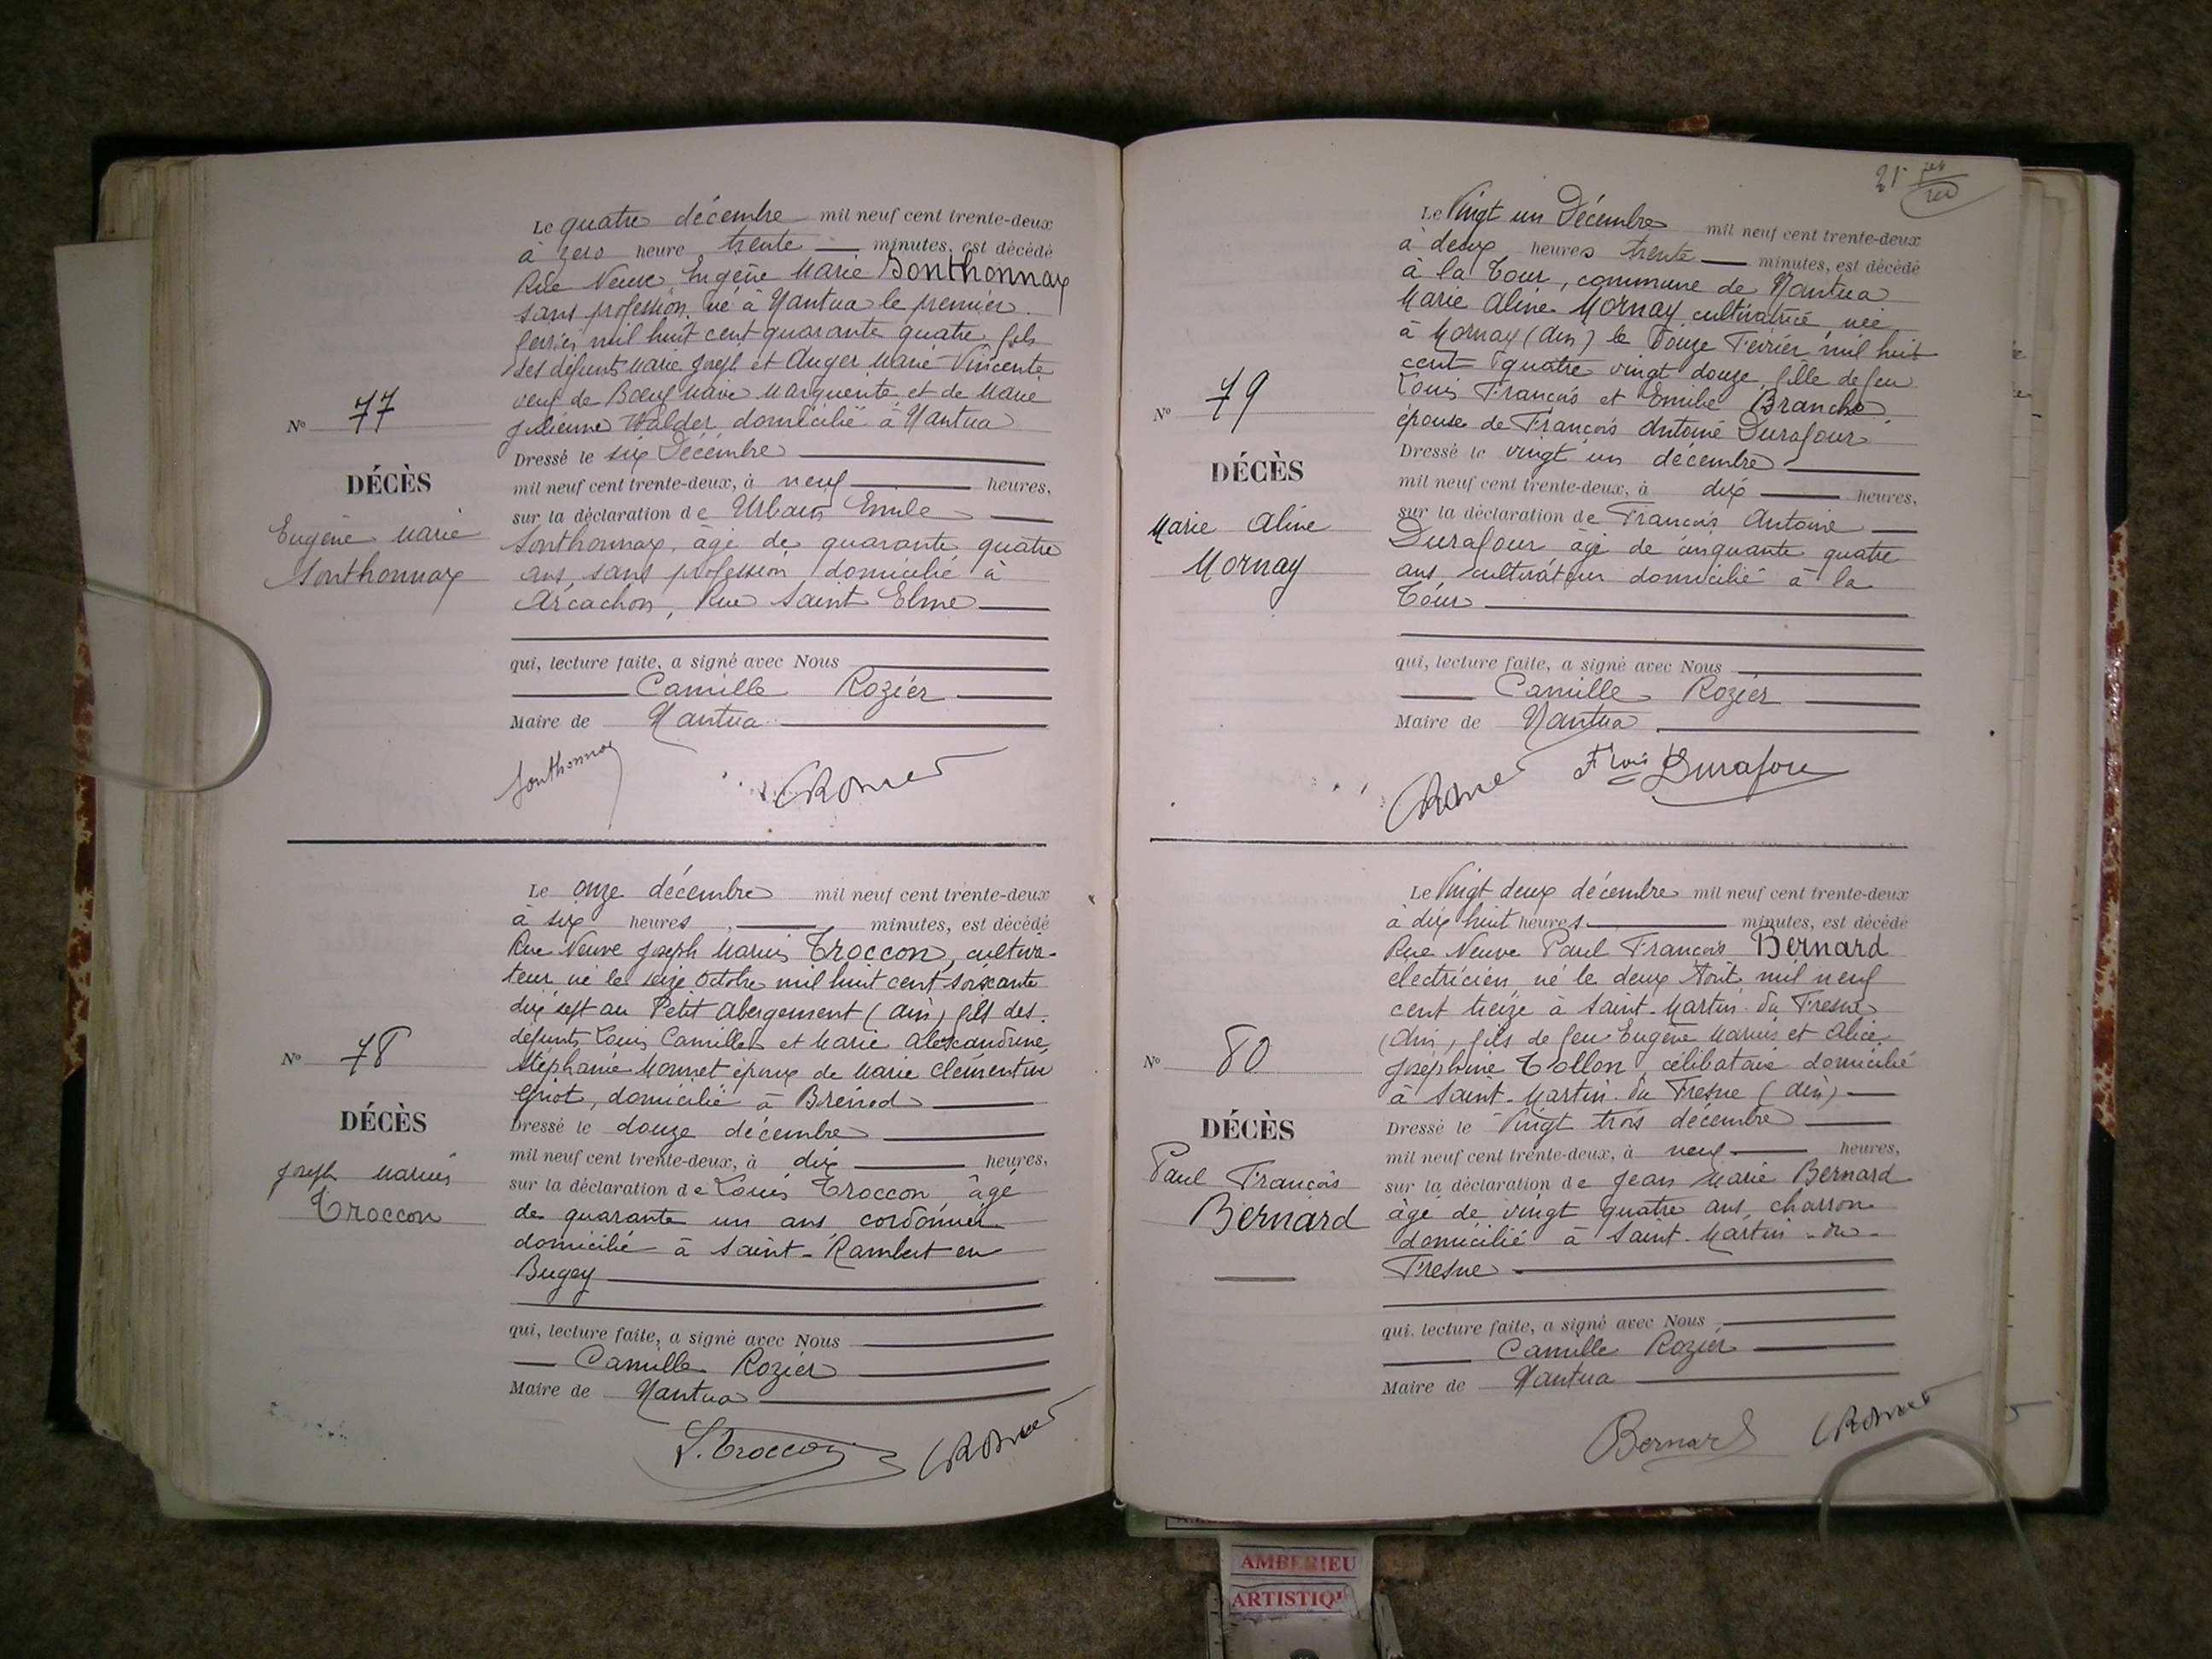 Le quatre décembre mil neuf cent trente-deux
à zero heure trente minutes, est décédé
Rue Neuve, Eugène Marie Sonthonnax
sans profession né à Nantua le premier
février mil huit cent quarante quatre, fils
des défunts Marie Joseph et Auger Marie Vincente
veuf de Boeuf Marie Marguerite et de Marie
Julienne Walder domicilié à Nantua
Dressé le six Décembre
mil neuf cent trente-deux, à neuf heures,
sur la déclaration de Urbain Emile
Sonthonnax, âgé de quarante quatre
ans, sans profession domicilié à
Arcachon, Rue Saint Elme
qui, lecture faite, a signé avec Nous
Camille Rozier
Maire de Nantua
N° 77
DÉCÈS
Eugène Marie
Sonthonnax
Sonthonnax CRozier
Le onze décembre mil neuf cent trente-deux
à six heures, minutes, est décédé
Rue Neuve Joseph Marius Troccon, cultiva-
teur né le seize Octobre mil huit cent soixante
dix sept au Petit Abergement (Ain) fils des
défunts Louis Camille et Marie Alexandrine
Stéphanie Monnet époux de Marie Clémentine
Griot, domicilié à Brénod
Dressé le douze décembre
mil neuf cent trente-deux, à dix heures,
sur la déclaration de Louis Troccon âgé
de quarante un ans cordonnier
domicilié à Saint-Rambert en
Bugey
qui, lecture faite, a signé avec Nous
Camille Rozier
Maire de Nantua
N° 78
DÉCÈS
Joseph Marius
Troccon
L. Troccon CRozier
21
Le Vingt un Décembre mil neuf cent trente-deux
à deux heures trente minutes, est décédé
à la Tour, commune de Nantua
Marie Aline Mornay cultivatrice, née
à Mornay (Ain) le Douze Février mil huit
cent quatre vingt douze, fille de feu
Louis François et Emilie Branche
épouse de François Antoine Durafour
Dressé le vingt un décembre
mil neuf cent trente-deux, à dix heures,
sur la déclaration de François Antoine
Durafour âgé de cinquante quatre
ans, cultivateur domicilié à la
Tour
qui, lecture faite, a signé avec Nous
Camille Rozier
Maire de Nantua
N° 79
DÉCÈS
Marie Aline
Mornay
CRozier Frois Durafour
Le Vingt deux décembre mil neuf cent trente-deux
à dix huit heures minutes, est décédé
Rue Neuve Paul François Bernard
electricien né le deux Août mil neuf
cent treize à Saint-Martin du Fresne
(Ain, fils de feu Eugène Marius et Alice
Joséphine Tollon, célibataire domicilié
à Saint-Martin du Fresne (Ain)
Dressé le Vingt trois décembre
mil neuf cent trente-deux, à neuf heures,
sur la déclaration de Jean Marie Bernard
âgé de vingt quatre ans, charron
domicilié à Saint-Martin-du-
Fresne
qui, lecture faite, a signé avec Nous
Camille Rozier
Maire de Nantua
N° 80
DÉCÈS
Paul François
Bernard
Bernard CRozier
AMBERIEU
ARTISTIQU